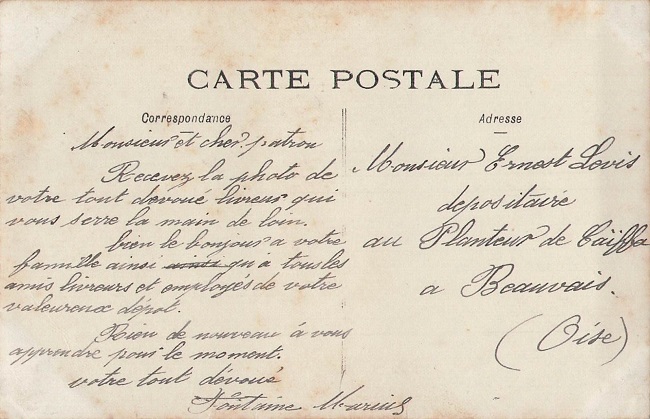 CARTE POSTALE
Correspondance
Monsieur et cher patron
Recevez la photo de
votre tout dévoué livreur qui
vous serre la main de loin.
bien le bonjour a votre
famille ainsi ainsi qu'a tous les
amis livreurs et employés de votre
valeureux dépot.
Rien de nouveau à vous
apprendre pour le moment.
votre tout dévoué
Fontaine Marius
Adresse
Monsieur Ernest Levis
depositaire
au Planteur de Caïffa
a Beauvais.
(Oise)